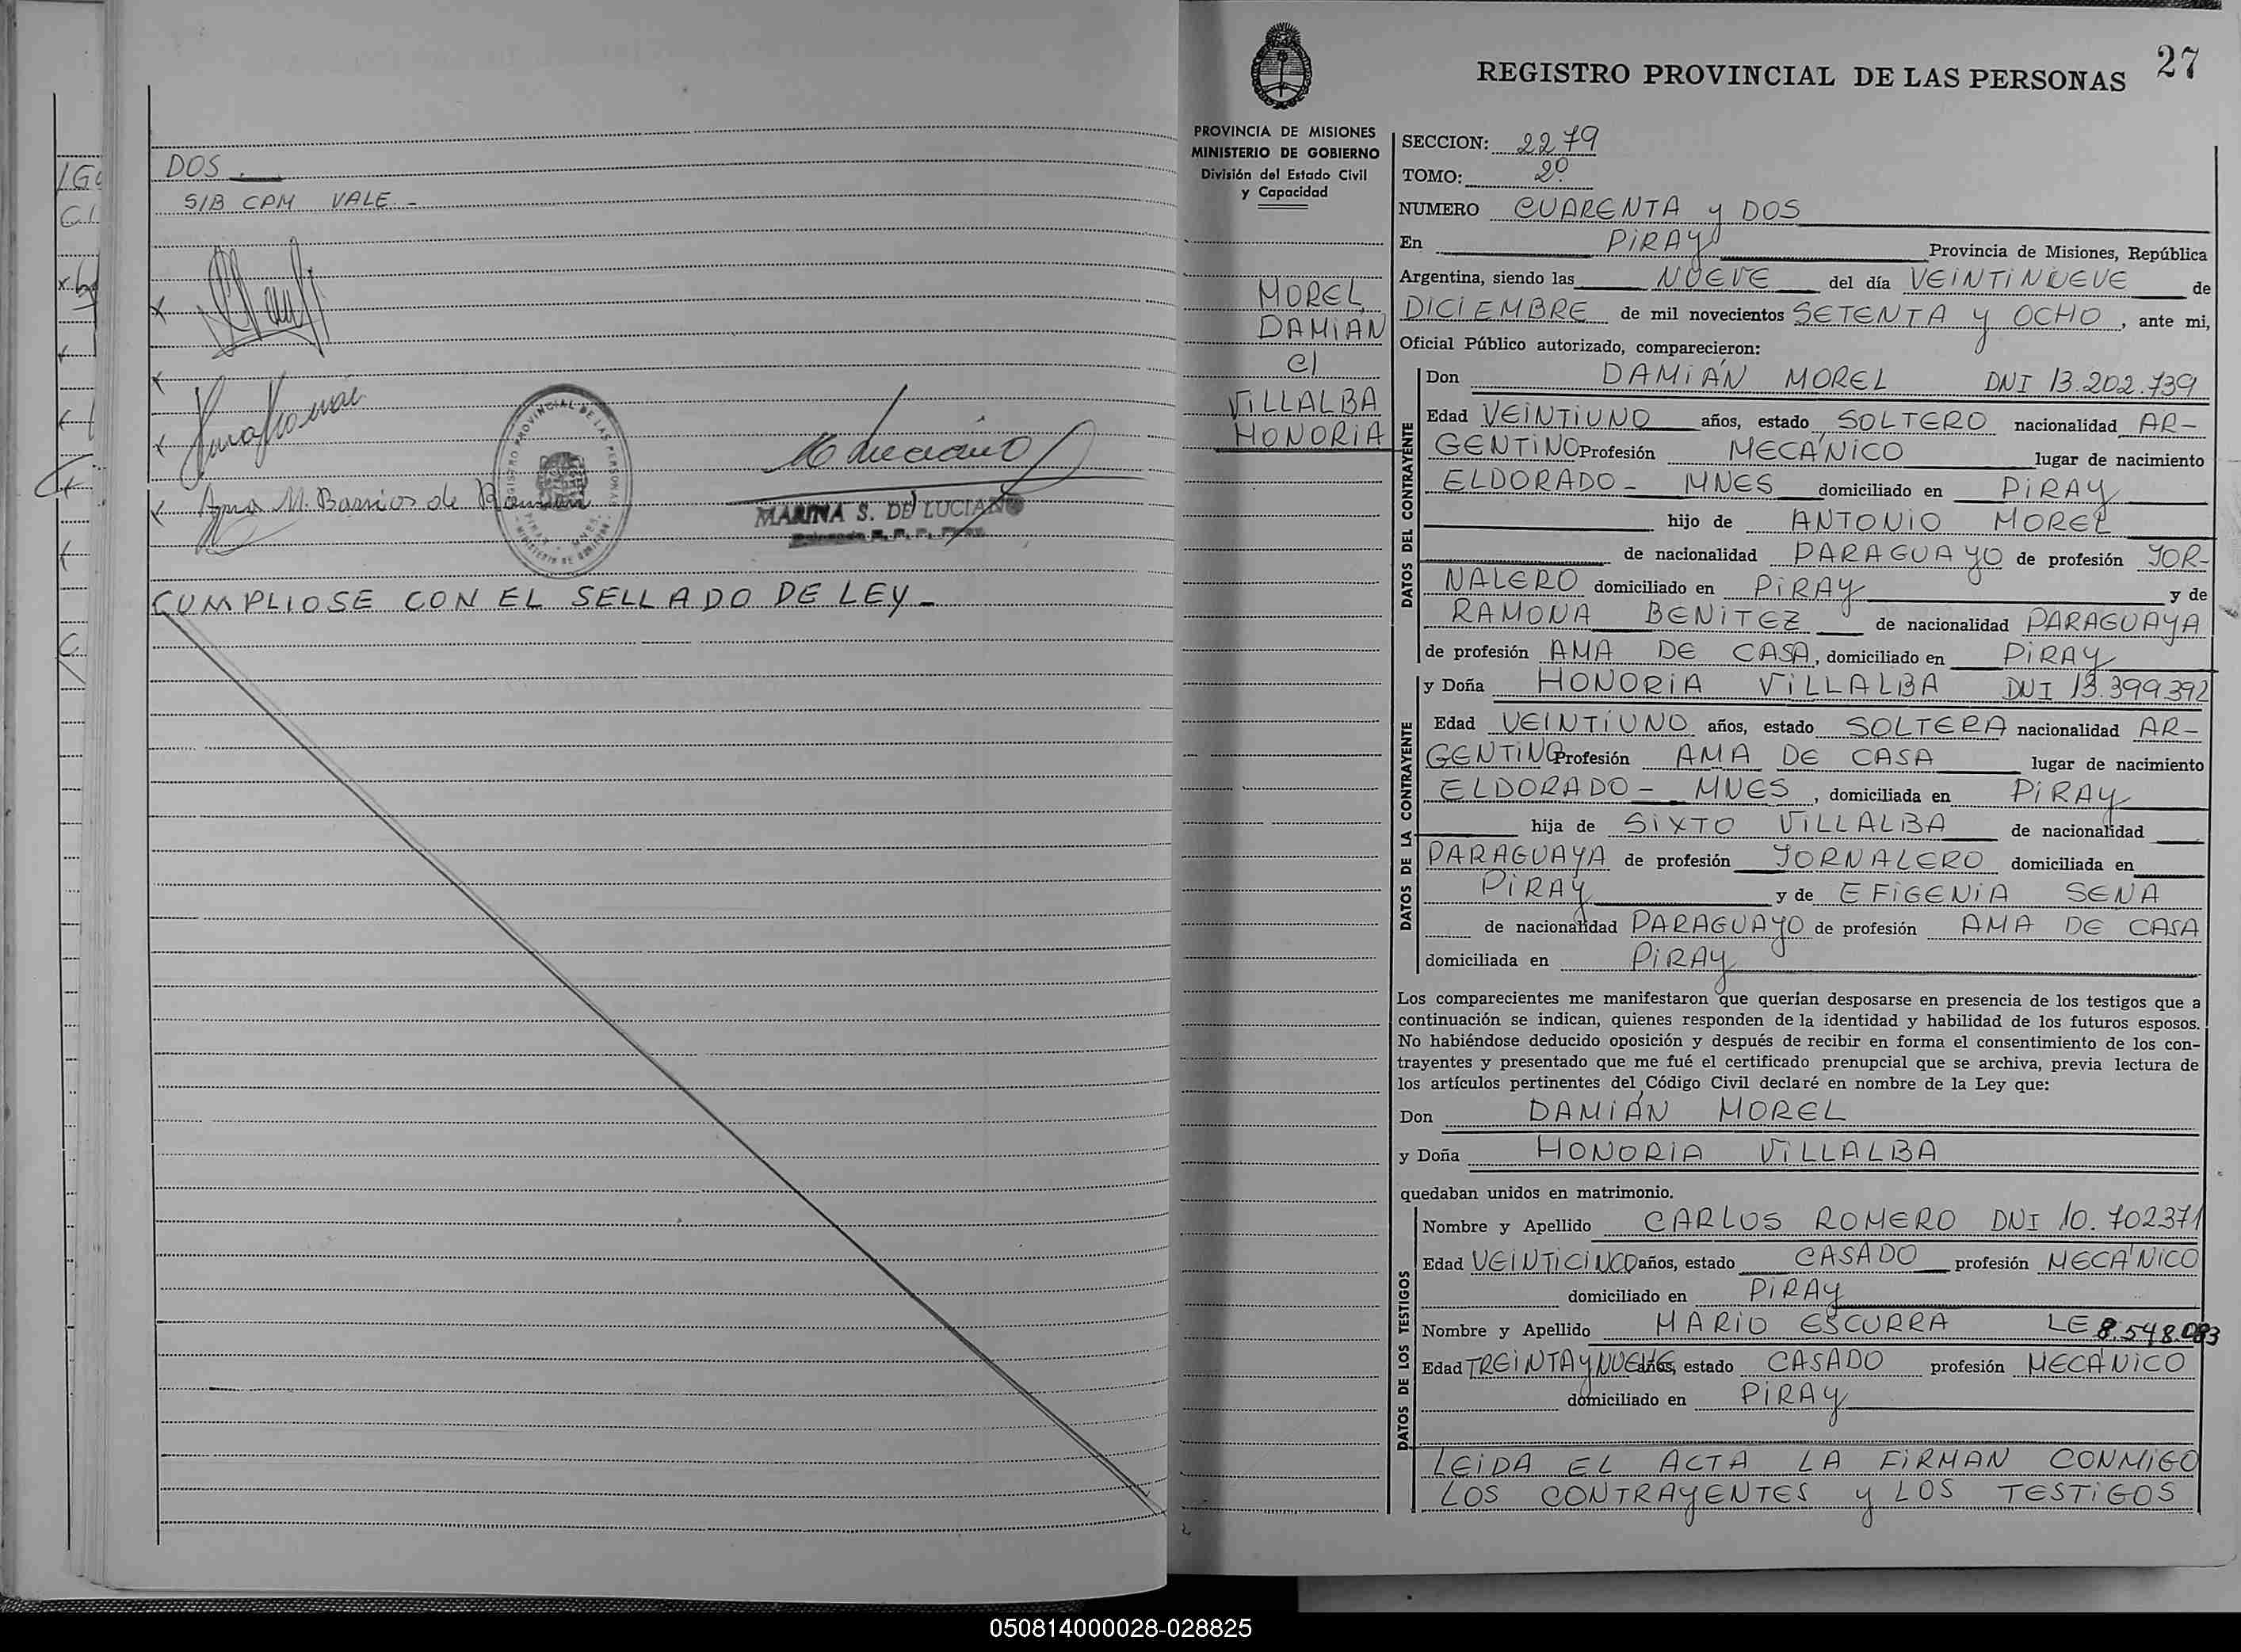 DOS.
S/B CPM VALE.-
Ana M. Barrios de
MARINA S. DE LUCIANO
CUMPLIOSE CON EL SELLADO DE LEY-
27
REGISTRO PROVINCIAL DE LAS PERSONAS
PROVINCIA DE MISIONES
MINISTERIO DE GOBIERNO
División del Estado Civil
y Capacidad
MOREL
DAMIÁN
C/
VILLALBA
HONORIA
SECCION: 2279
TOMO: 2º
NUMERO CUARENTA y DOS
En PIRAY Provincia de Misiones, República
Argentina, siendo las NUEVE del día VEINTINUEVE de
DICIEMBRE de mil novecientos SETENTA y OCHO, ante mi,
Oficial Público autorizado, comparecieron:
DATOS DEL CONTRAYENTE
Don DAMIÁN MOREL DNI 13.202.739
Edad VEINTIUNO años, estado SOLTERO nacionalidad AR-
GENTINO Profesión MECÁNICO lugar de nacimiento
ELDORADO- MNES domiciliado en PIRAY
hijo de ANTONIO MOREL
de nacionalidad PARAGUAYO de profesión JOR-
NALERO domiciliado en PIRAY y de
RAMONA BENITEZ de nacionalidad PARAGUAYA
de profesión AMA DE CASA, domiciliado en PIRAY
DATOS DE LA CONTRAYENTE
y Doña HONORIA VILLALBA DNI 13.399.392
Edad VEINTIUNO años, estado SOLTERA nacionalidad AR-
GENTINO Profesión AMA DE CASA lugar de nacimiento
ELDORADO- MNES, domiciliada en PIRAY
hija de SIXTO VILLALBA de nacionalidad
PARAGUAYA de profesión JORNALERO domiciliada en
PIRAY y de EFIGENIA SENA
de nacionalidad PARAGUAYO de profesión AMA DE CASA
domiciliada en PIRAY
Los comparecientes me manifestaron que querían desposarse en presencia de los testigos que a
continuación se indican, quienes responden de la identidad y habilidad de los futuros esposos.
No habiéndose deducido oposición y después de recibir en forma el consentimiento de los con-
trayentes y presentado que me fué el certificado prenupcial que se archiva, previa lectura de
los artículos pertinentes del Código Civil declaré en nombre de la Ley que:
Don DAMIÁN MOREL
y Doña HONORIA VILLALBA
quedaban unidos en matrimonio.
DATOS DE LOS TESTIGOS
Nombre y Apellido CARLOS ROMERO DNI 10.702371
Edad VEINTICINCO años, estado CASADO profesión MECÁNICO
domiciliado en PIRAY
Nombre y Apellido MARIO ESCURRA LE 8.548.083
Edad TREINTA y NUEVE años, estado CASADO profesión MECÁNICO
domiciliado en PIRAY
LEIDA EL ACTA LA FIRMAN CONMIGO
LOS CONTRAYENTES y LOS TESTIGOS
050814000028-028825